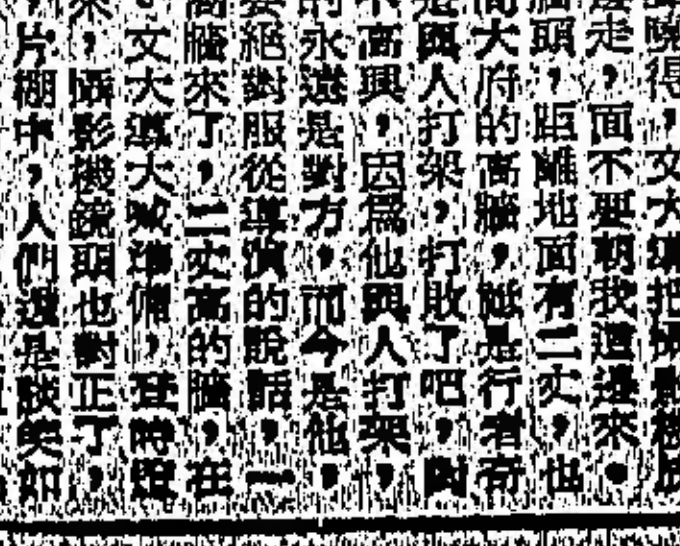 得,文大導把
走,面不要朝我這邊來。
頭,距離地面有二丈,也
大府的高牆,
行者奇
與人打架,打敗了吧,
高興,因爲他與人打架,
永遠是對方,而今是他,
絕對服從導演的說話,一
牆來了,二丈高的牆,在
文大導大喊準備,登時燈
,攝影機鏡頭也對正了,
片棚中,人們還是談笑如